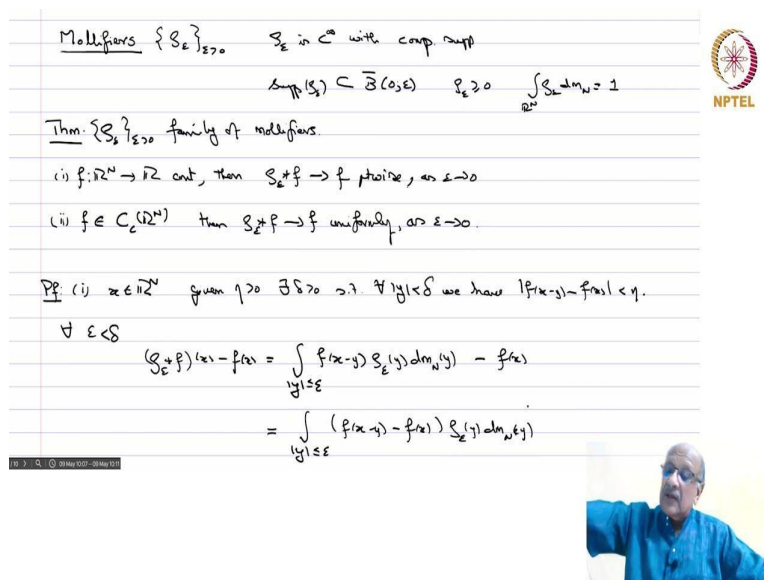 Mollifiers {ρ_ε}_{ε>0} ρ_ε in C^∞ with comp. supp
supp(ρ_ε) ⊂ B̄(0,ε) ρ_ε ≥ 0 ∫_{ℝ^N} ρ_ε dm_N = 1
NPTEL
Thm. {ρ_ε}_{ε>0} family of mollifiers.
(i) f: ℝ^N → ℝ cont, then ρ_ε * f → f ptwise, as ε→0
(ii) f ∈ C_c(ℝ^N) then ρ_ε * f → f uniformly, as ε→0.
Pf: (i) x ∈ ℝ^N given η>0 ∃ δ>0 s.t. ∀ |y|<δ we have |f(x-y) - f(x)| < η.
∀ ε<δ
(ρ_ε * f)(x) - f(x) = ∫_{|y|≤ε} f(x-y) ρ_ε(y) dm_N(y) - f(x)
= ∫_{|y|≤ε} (f(x-y) - f(x)) ρ_ε(y) dm_N(y)
09 May 10:07 - 09 May 10:11